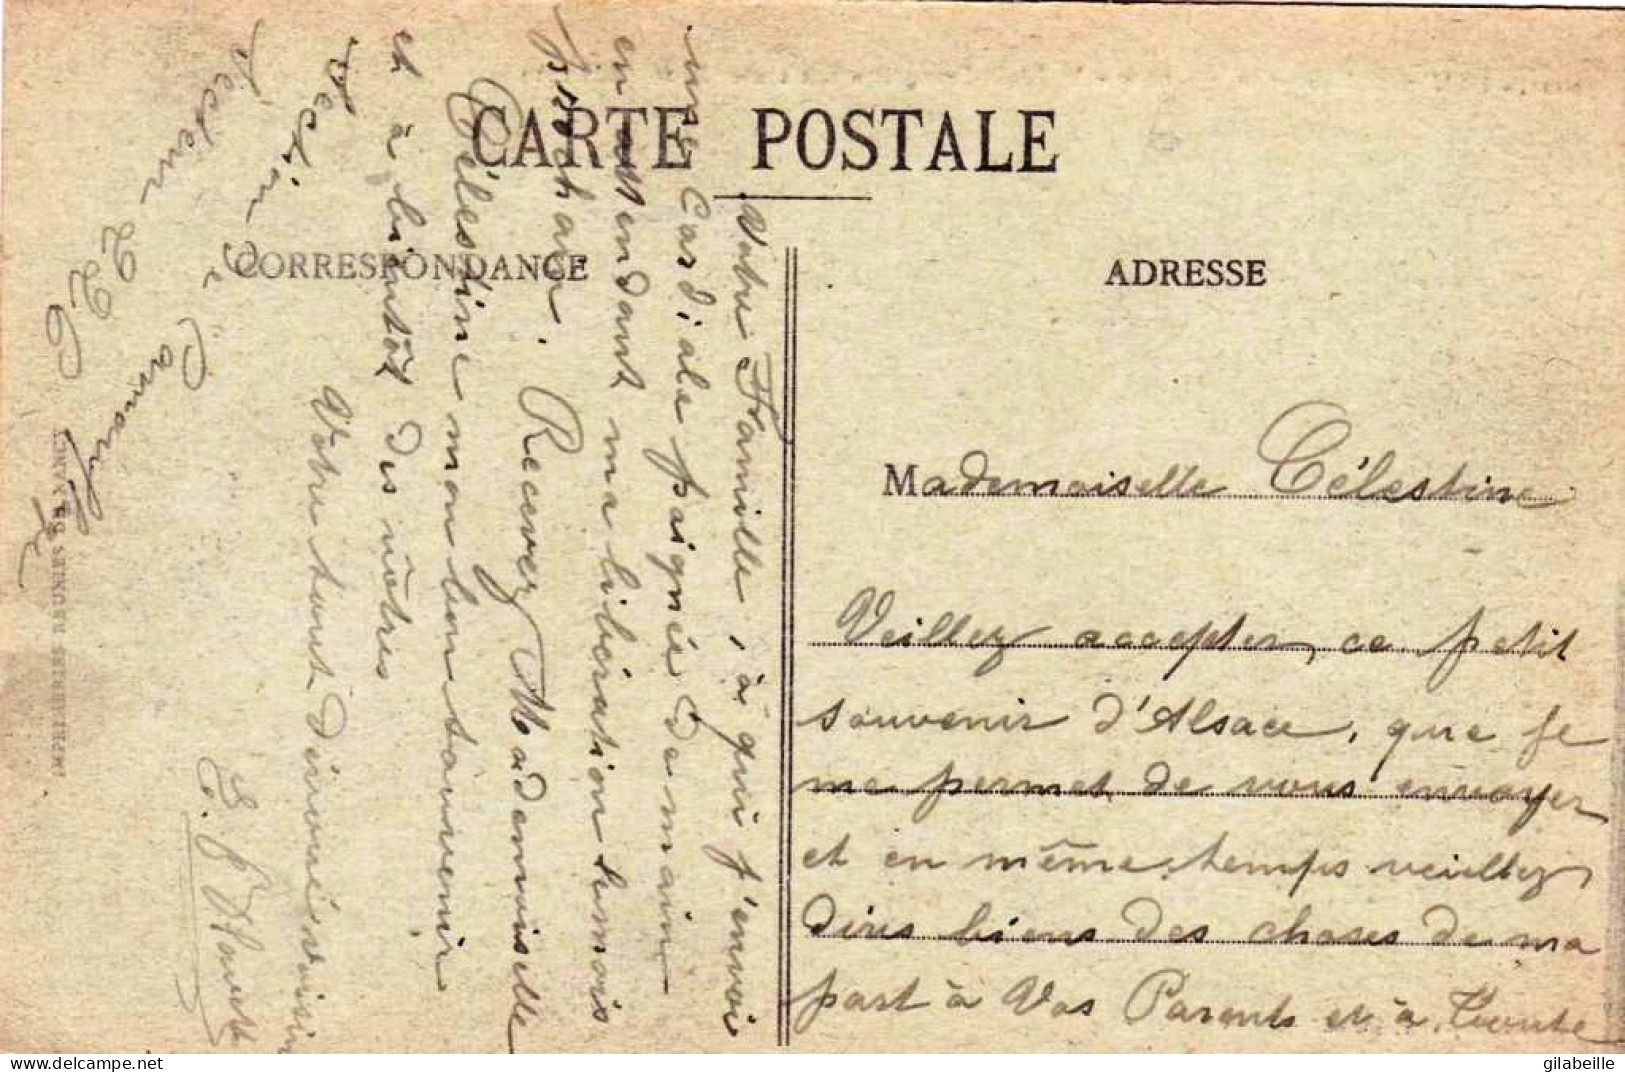 CARTE POSTALE
CORRESPONDANCE
ADRESSE
Mademoiselle Célestine
Veillez accepter, ce petit
souvenir d'Alsace, que je
me permet de vous envoyer
et en même temps veillez
dire biens des choses de ma
part à Vos Parents et à Toute
Votre Framille, à qui j'envoi
une Cardiale poignée de main
en attendant ma libération le mois
prochain. Recevez Mademoiselle
Célestine mon bon souvenir
et à bientôt des nôtres
Votre tout dévoué voisin
Secteur 226
IMPRIMERIES REUNIES DE NANCY
gilabeille